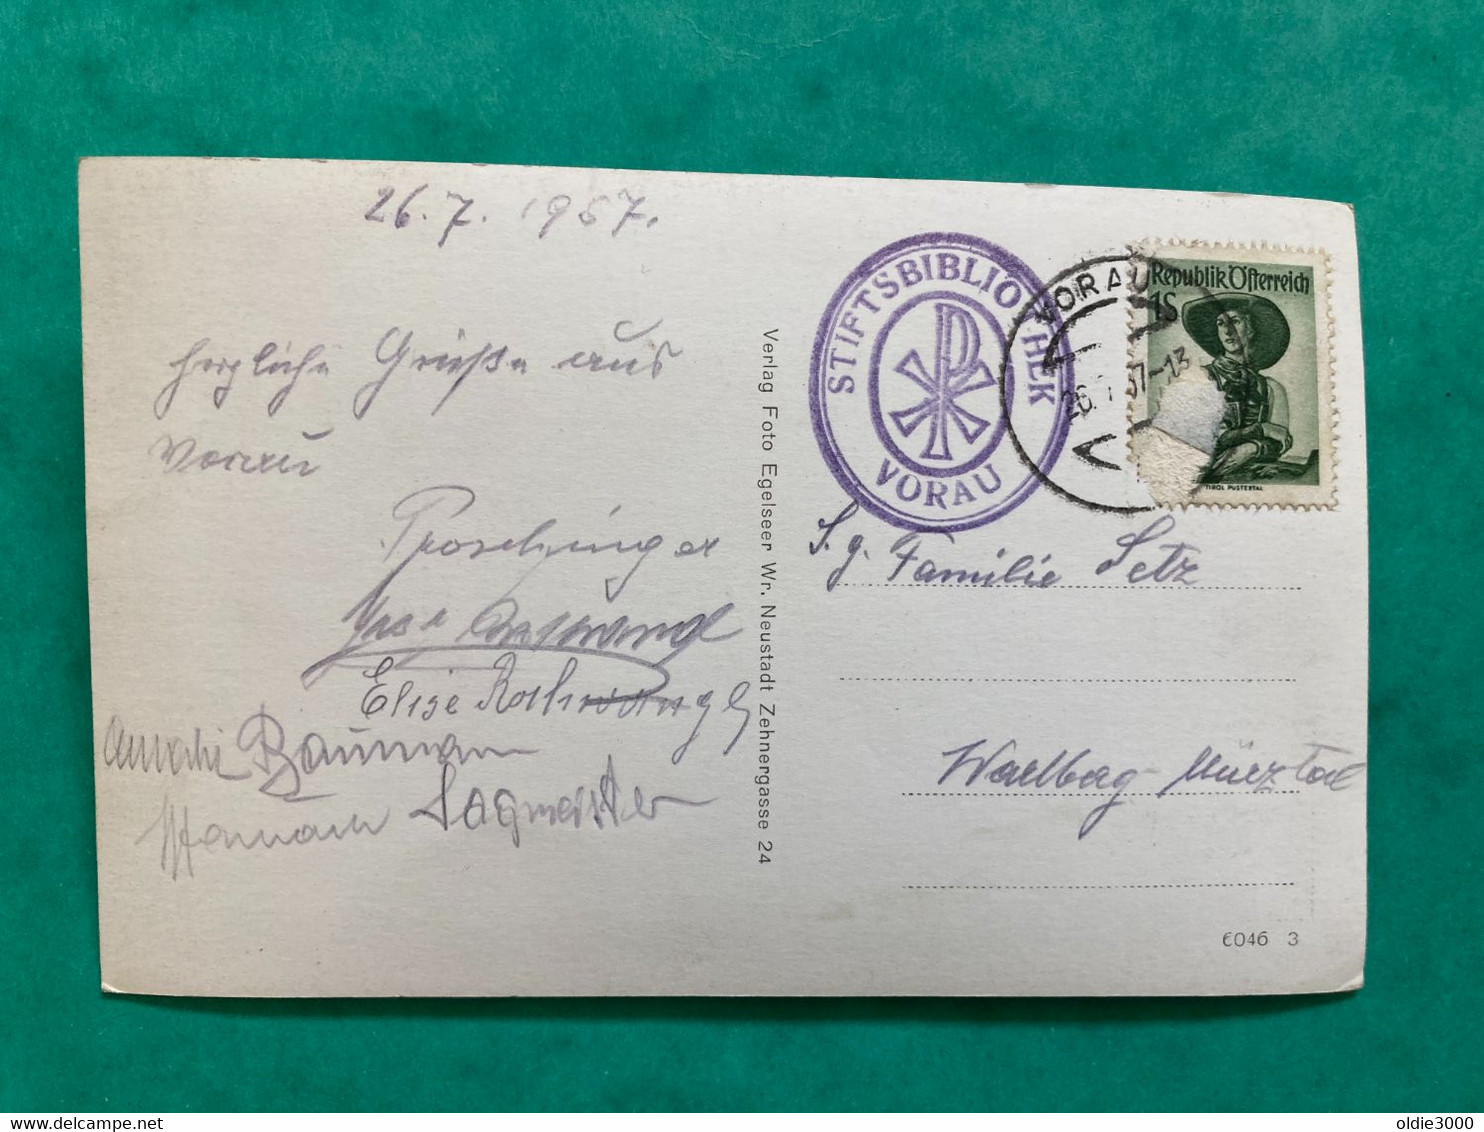 26.7.1957.
herzliche Grüße aus
Vorau
Proschinger
Elise
Bauman
Hermann Sagmeister
Verlag Foto Egelseer Wr. Neustadt Zehnergasse 24
STIFTSBIBLIOTHEK
VORAU
VORAU
26.7.57-13
Republik Österreich
1S
TIROL PUSTERTAL
S. g. Familie Setz
Mürztal
6046 3
oldie3000